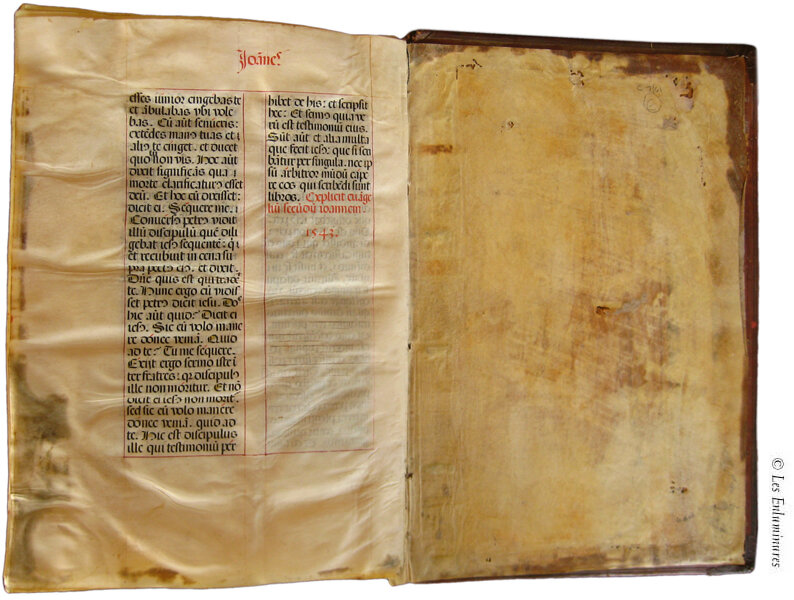 Joan̄es
esses iunior cingebas te
et ābulabas vbi vole
bas. Cū aūt senueris:
extēdes manꝰ tuas et
aliꝰ te cinget. et ducet
quo non vis. Hoc aūt
dixit significās qua
morte clarificaturꝰ esset
deū. Et hoc cū dixisset:
dicit ei. Sequere me.
Conversꝰ petrꝰ vidit
illū discipulū quē dili
gebat iesꝰ sequentē: qⁱ
et recubuit in cena su
pra pectꝰ eiꝰ. et dixit.
Dn̄e quis est qui tradet
te. Hunc ergo cū vidis
set petrꝰ dicit iesu. Do
hic aūt quid? Dicit ei
iesꝰ. Sic eū volo mane
re donec veniā. Quid
ad te? Tu me sequere.
Exiit ergo sermo iste ī
ter fratres: qꝛ discipulꝰ
ille non moritur. Et nō
dixit ei iesꝰ non morit.
sed sic eū volo manere
donec veniā. quid ad
te. Hic est discipulus
ille qui testimoniū per
hibet de his: et scripsit
hec: Et scimꝰ quia ve
rū est testimoniū eius.
Sūt aūt et alia multa
que fecit iesꝰ: que si scri
bātur per singula. nec ip
sū arbitror mūdū cape
re eos qui scribēdi sunt
libros. Explicit euāge
liū secūdū ioannem.
1543.
© Les Enluminures